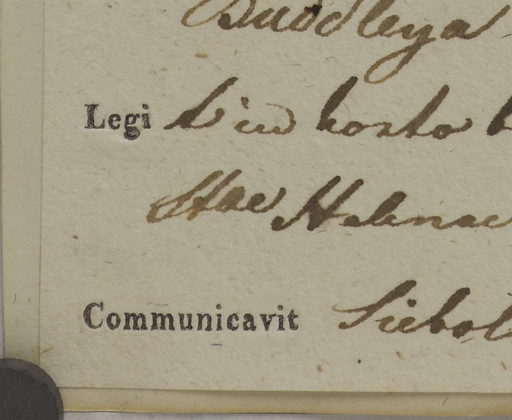 Buddleya
Legi in horto
Stae Helenae
Communicavit Siebol